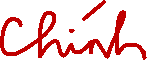 Chính